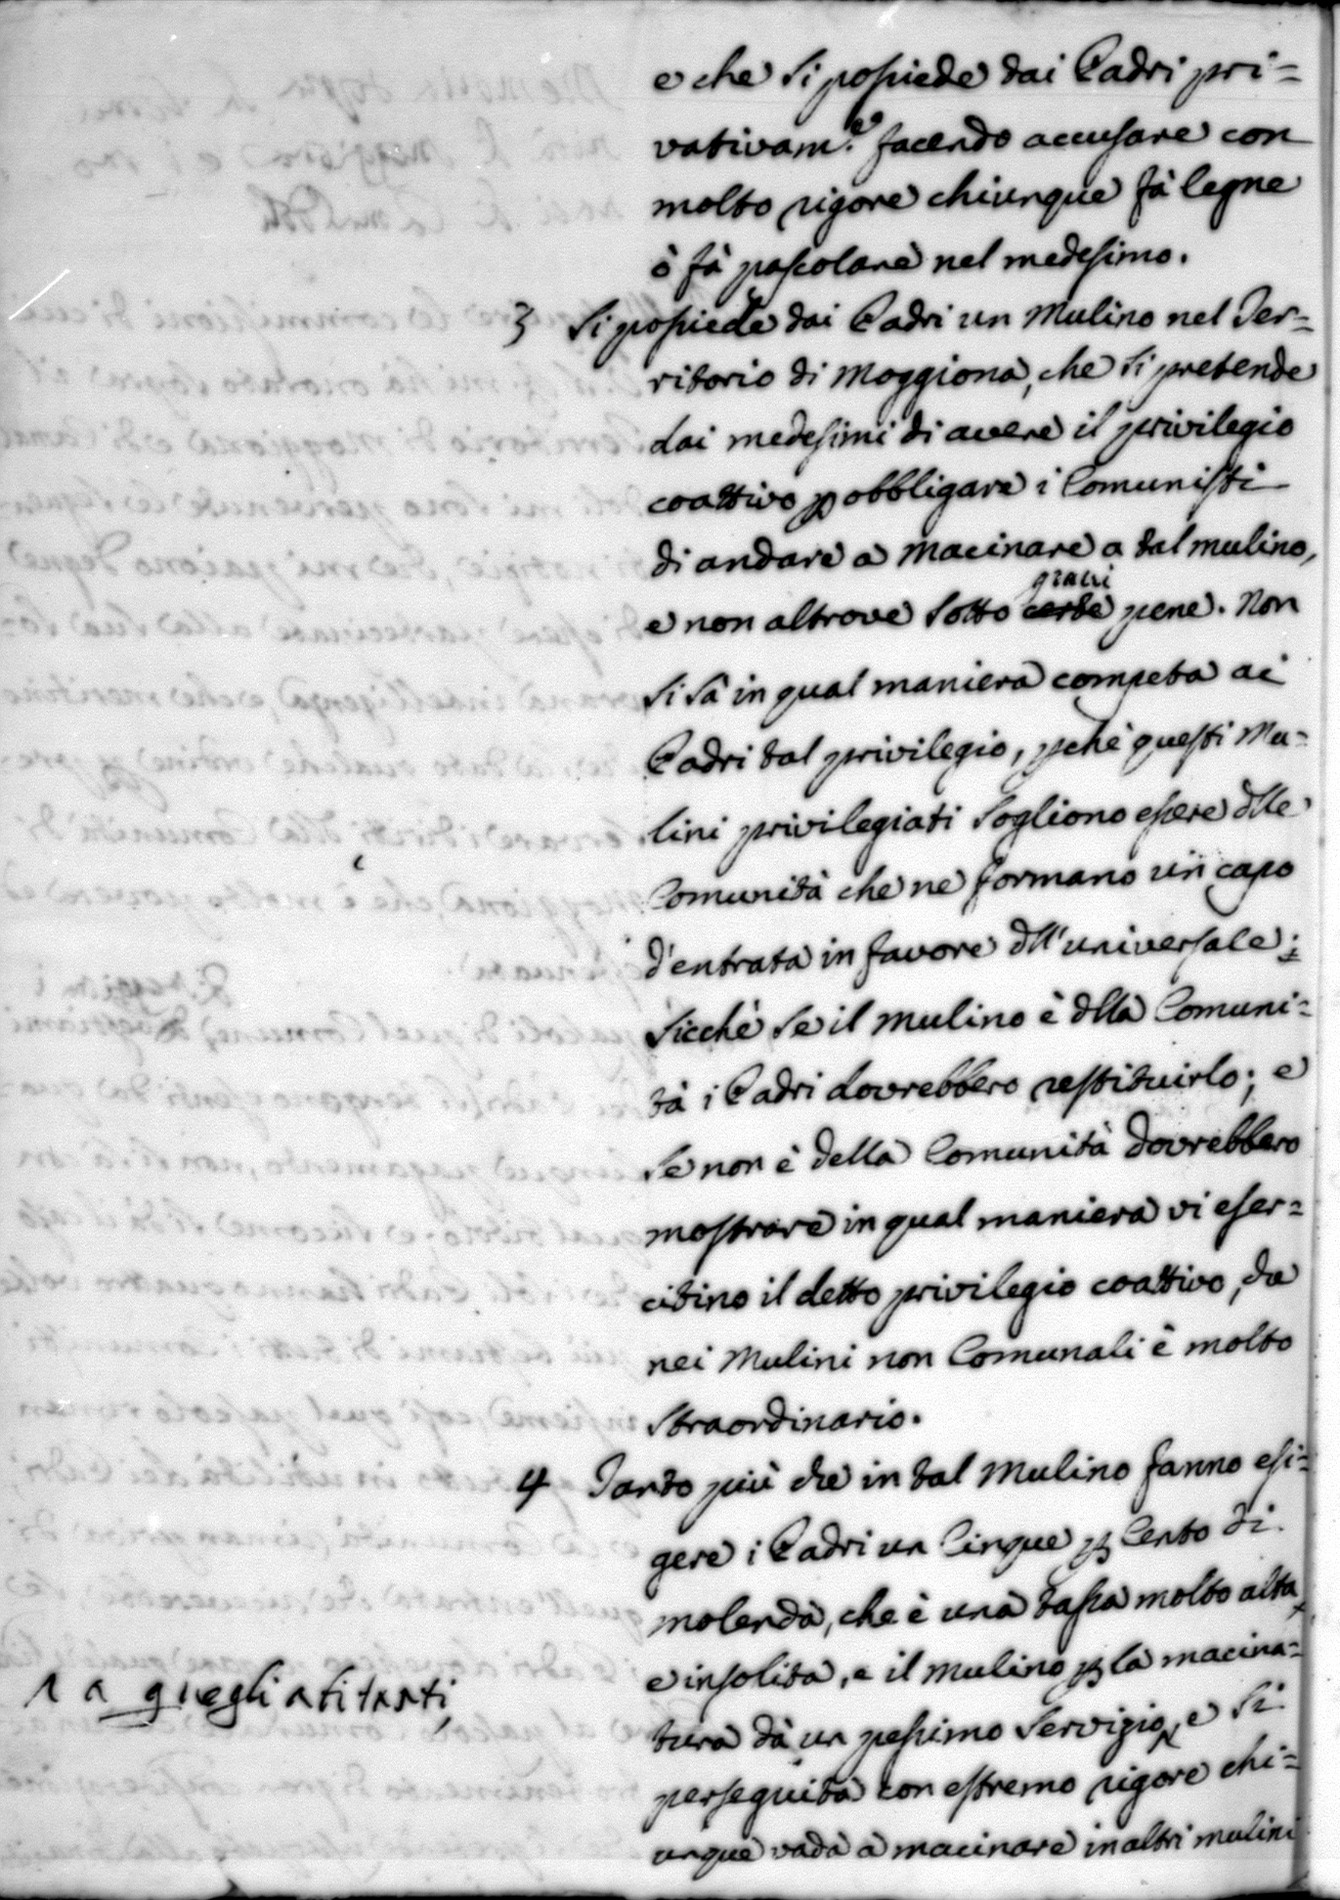 e che si possiede dai Padri pri=
vativam.e facendo accusare con
molto rigore chiunque fà legne
ò fà pascolare nel medesimo.
3 Si possiede dai Padri un Mulino nel Ter=
ritorio di Moggiona, che si pretende
dai medesimi di avere il privilegio
coattivo p obbligare i Comunisti
di andare a macinare a tal mulino,
gravi
e non altrove sotto certe pene. Non
si sà in qual maniera competa ai
Padri tal privilegio, pchè questi Mu=
lini privilegiati sogliono essere dlle
Comunità che ne formano un capo
d'entrata in favore dll'universale;
sicchè se il mulino è dlla Comuni=
tà i Padri dovrebbero restituirlo; e
se non è della Comunità dovrebbero
mostrare in qual maniera vi eser=
citino il detto privilegio coattivo, che
nei Mulini non Comunali è molto
straordinario.
4 Tanto più che in tal Mulino fanno esi=
gere i Padri un Cinque p Cento di
molenda, che è una tassa molto alta
e insolita, e il mulino p la macina=
tura dà un pessimo servizio, e si
1 a quegli abitanti,
perseguita con estremo rigore chi=
unque vada a macinare in altri mulini